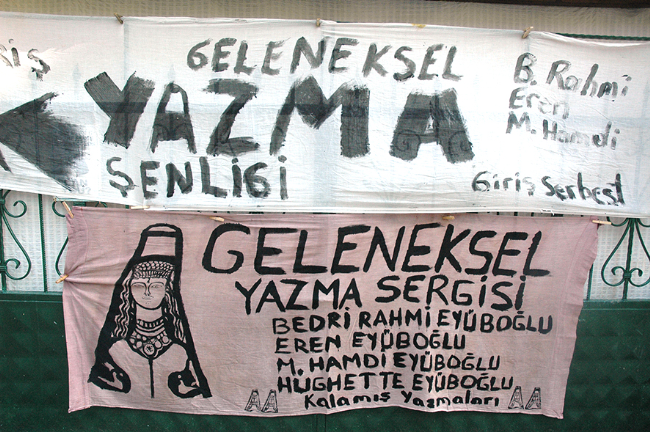 GELENEKSEL
YAZMA
ŞENLİĞİ
B. Rahmi
Eren
M. Hamdi
Giriş Serbest
GELENEKSEL
YAZMA SERGİSİ
BEDRİ RAHMİ EYÜBOĞLU
EREN EYÜBOĞLU
M. HAMDİ EYÜBOĞLU
HUGHETTE EYÜBOĞLU
Kalamış Yazmaları